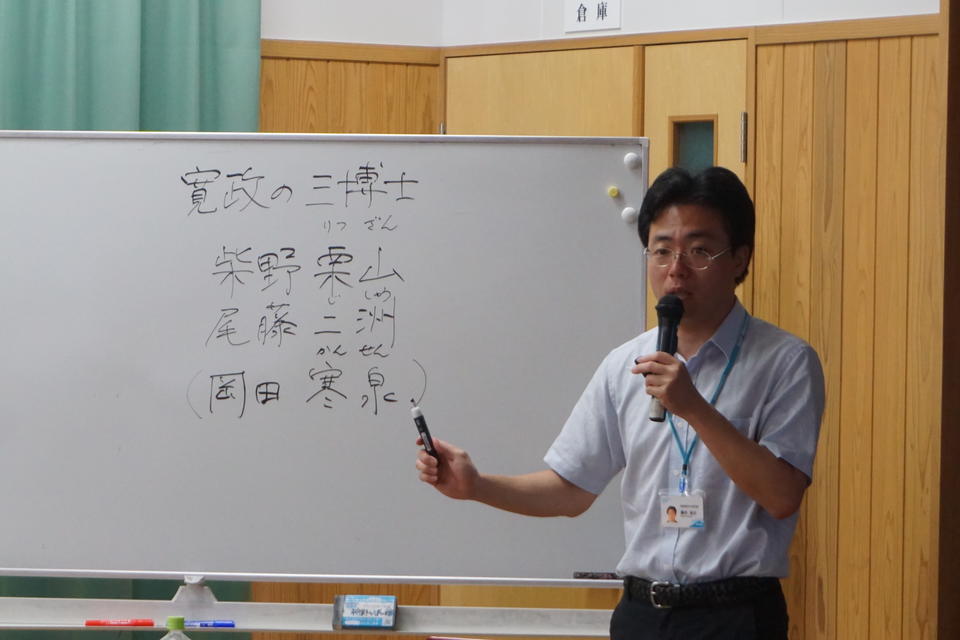 倉庫
寛政の三博士
りつざん
柴野栗山
じしゅう
尾藤二洲
かんせん
(岡田寒泉)